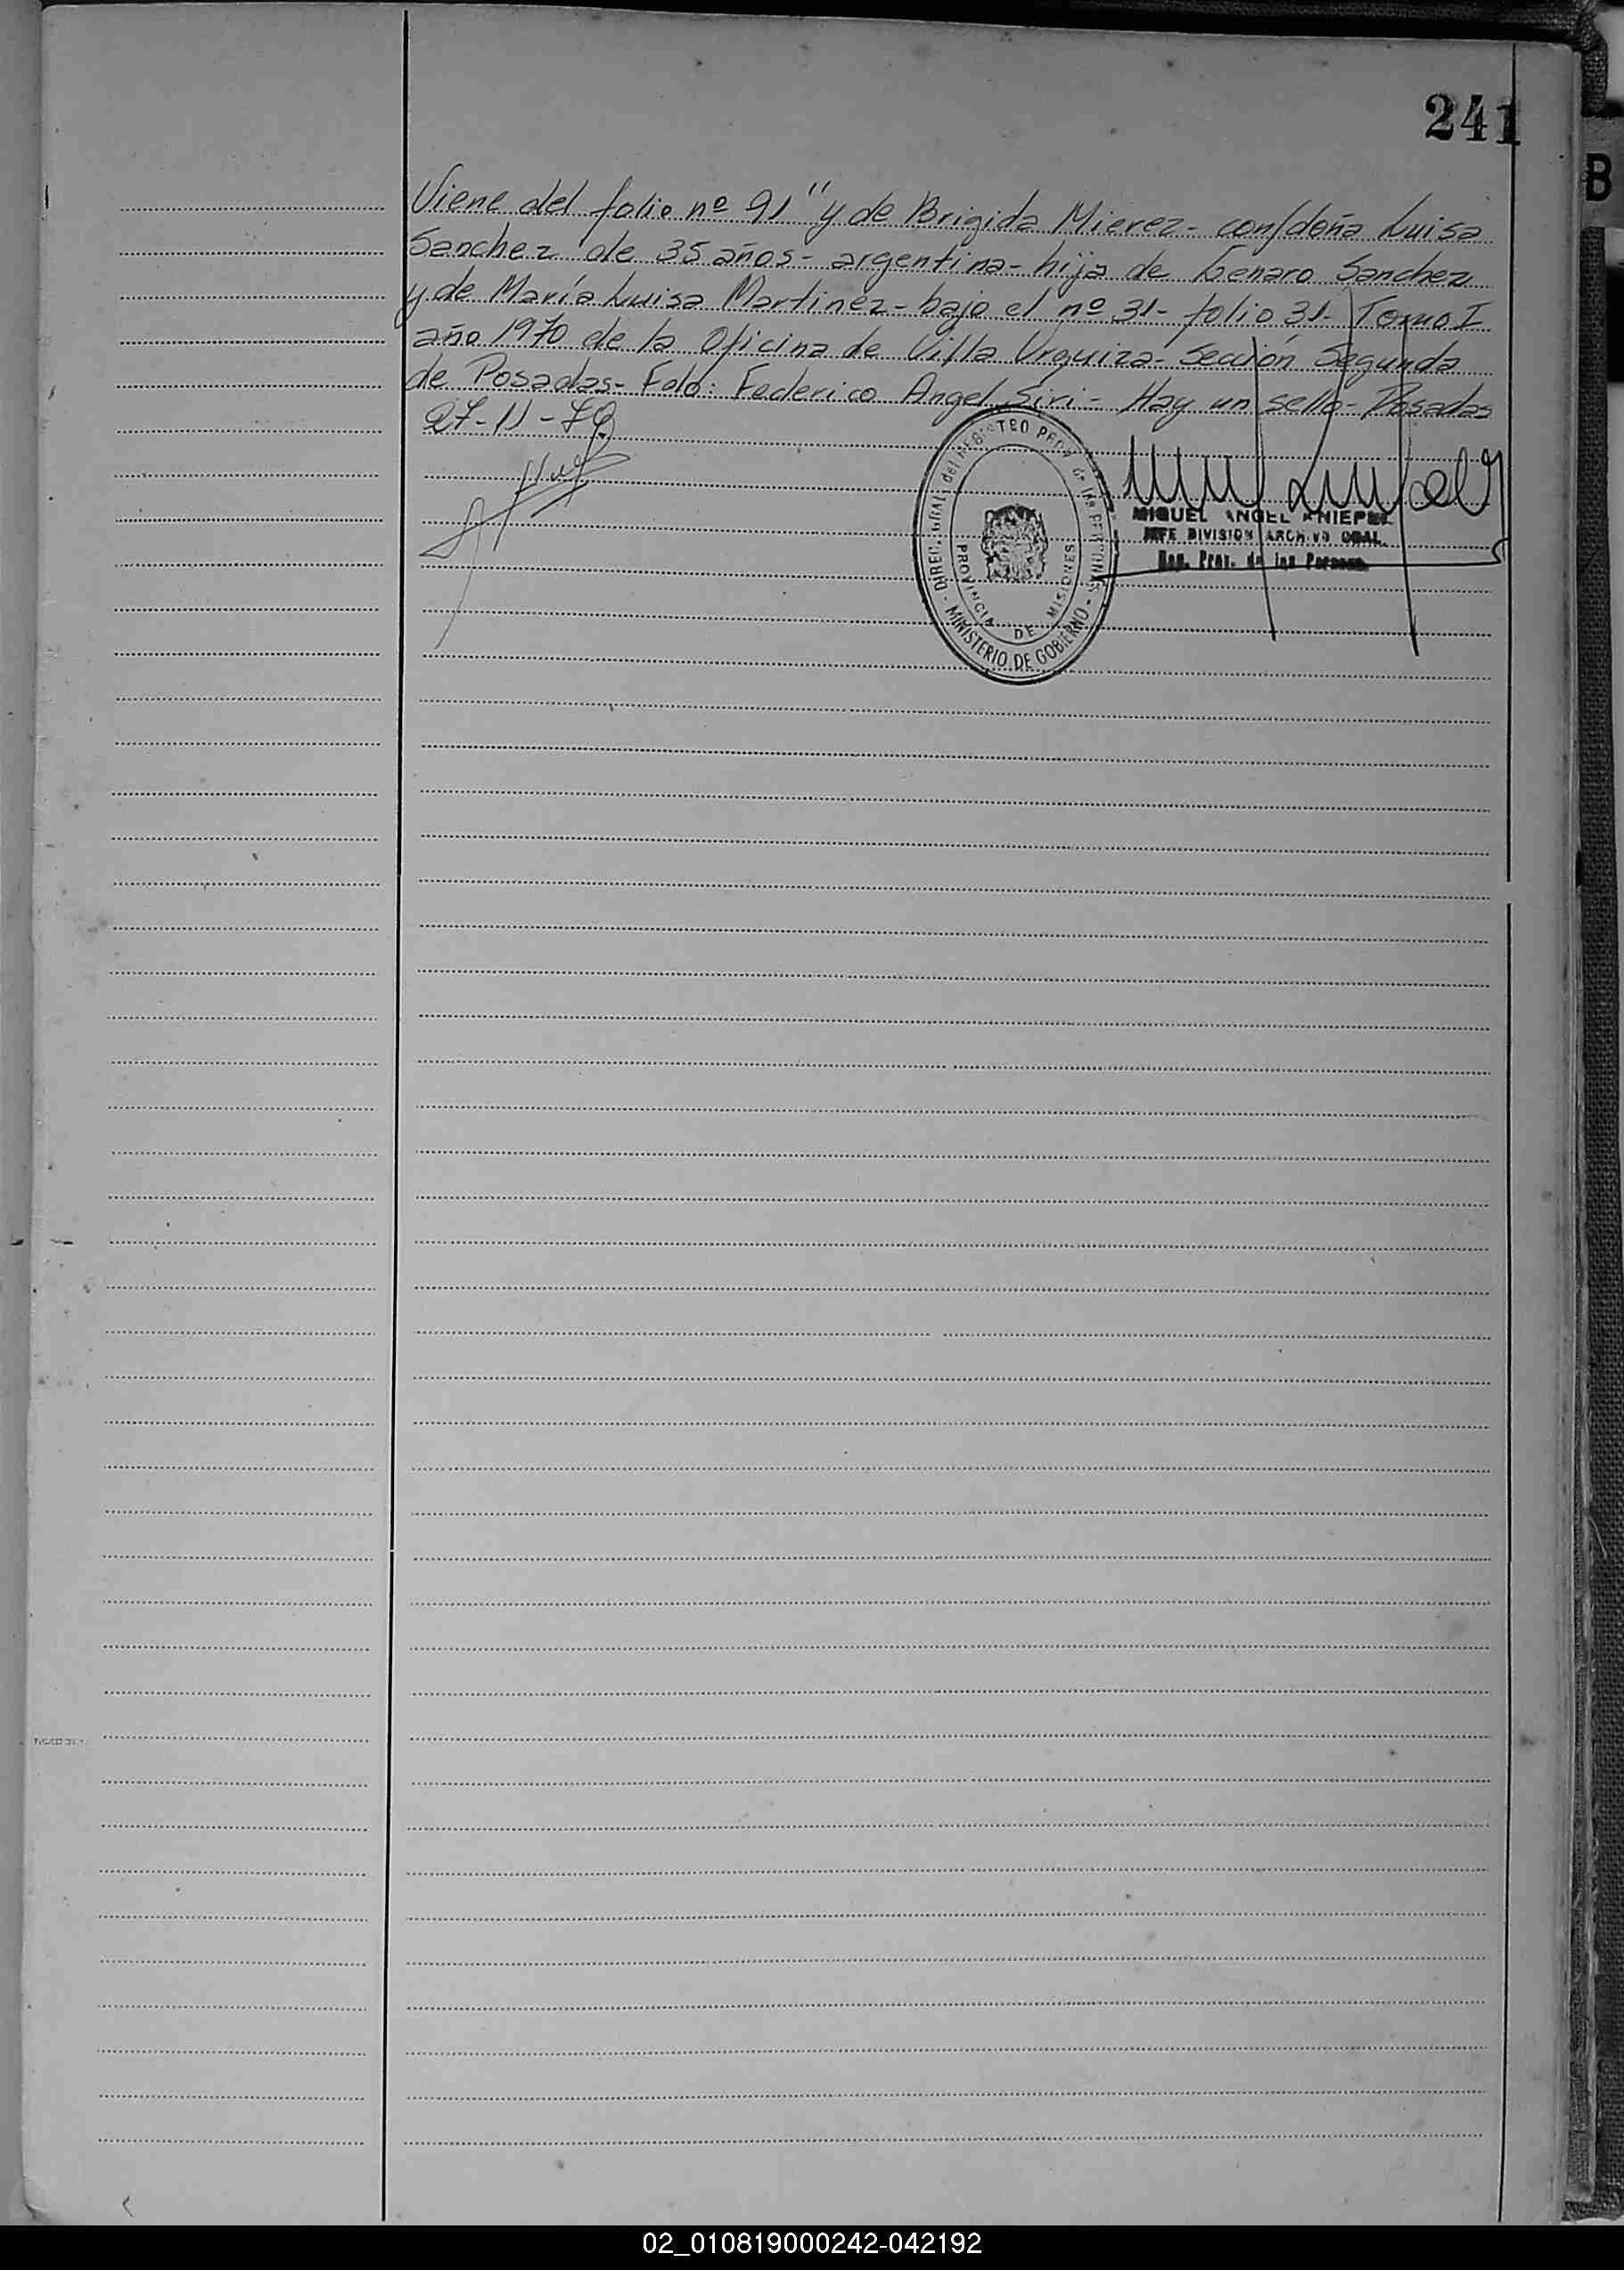 241
B
Viene del folio nº 91 "y de Brigida Mierez - con/doña Luisa
Sanchez de 35 años - argentina - hija de Genaro Sanchez
y de María Luisa Martinez - bajo el nº 31 - folio 31 - Tomo I
año 1970 de la Oficina de Villa Urquiza - Sección Segunda
de Posadas - Fdo: Federico Angel Siri - Hay un sello - Posadas
27-11-70
MIGUEL ANGEL
JEFE DIVISION ARCHIVO GRAL.
Reg. Prov. de las Personas
DIREC. GRAL. del REGISTRO PROV. de las PERSONAS
MINISTERIO DE GOBIERNO
PROVINCIA DE MISIONES
02_010819000242-042192